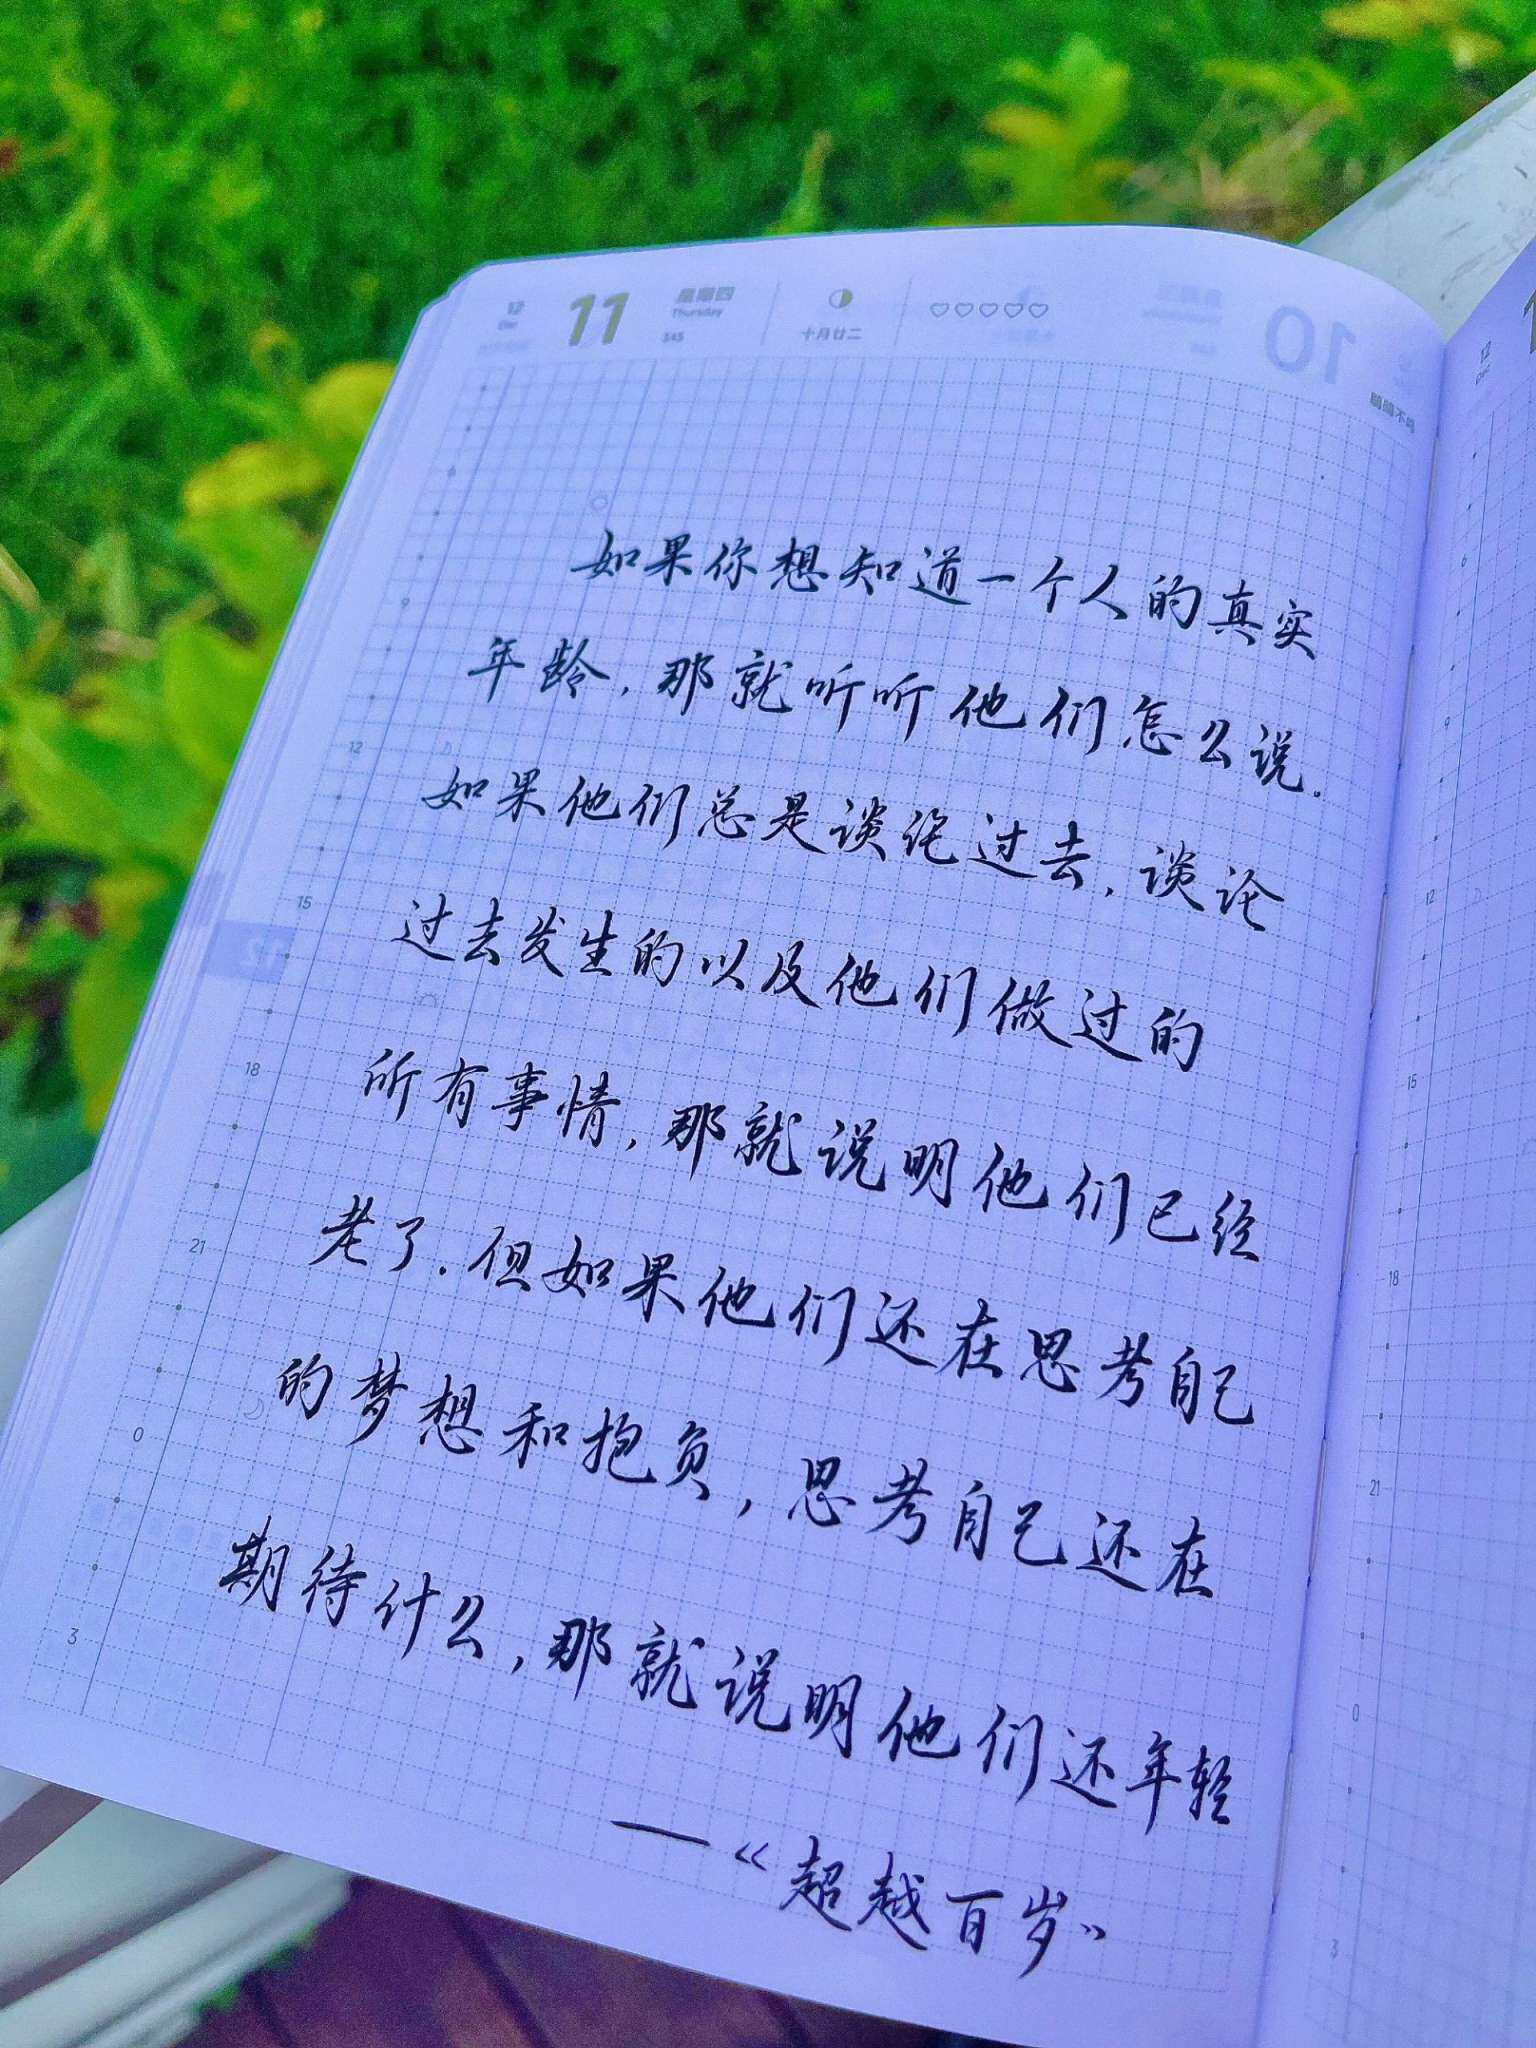 12
Dec
11
星期四
Thursday
345
十月廿二
10
如果你想知道一个人的真实
年龄，那就听听他们怎么说.
如果他们总是谈论过去，谈论
过去发生的以及他们做过的
所有事情，那就说明他们已经
老了.但如果他们还在思考自己
的梦想和抱负，思考自己还在
期待什么，那就说明他们还年轻
—《超越百岁》
9
12
15
18
21
0
3
12
6
9
12
15
18
21
0
3